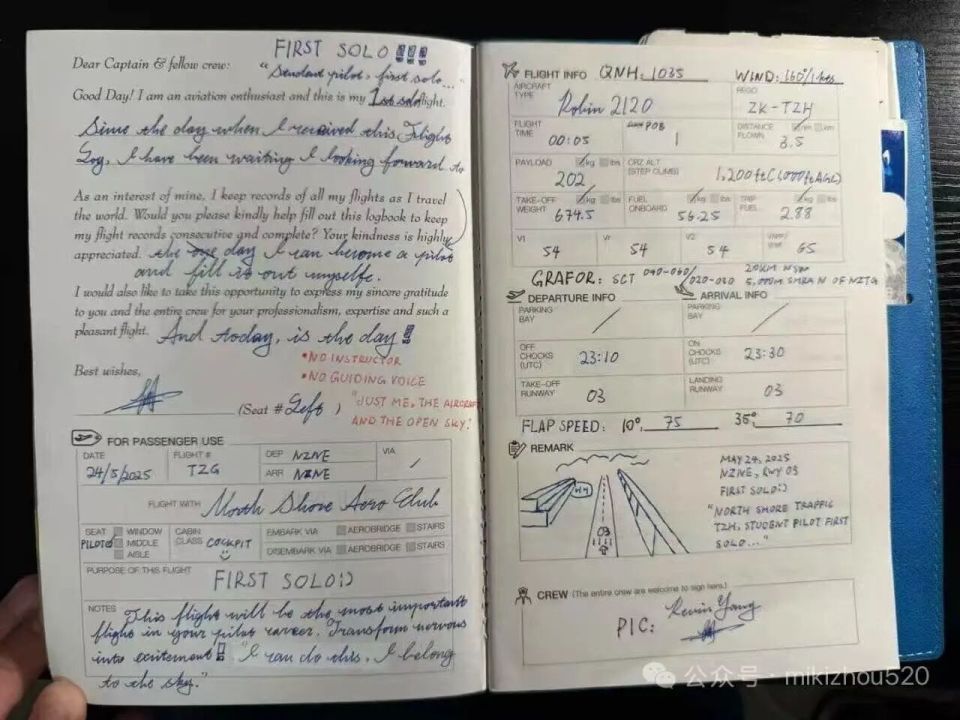 FIRST SOLO !!!
Dear Captain & fellow crew:
"Student pilot, first solo..."
Good Day! I am an aviation enthusiast and this is my 1st solo flight.
Since the day when I received this Flight
Log, I have been waiting & looking forward to
As an interest of mine, I keep records of all my flights as I travel
the world. Would you please kindly help fill out this logbook to keep
my flight records consecutive and complete? Your kindness is highly
appreciated. the one day I can become a pilot
and fill it out myself.
I would also like to take this opportunity to express my sincere gratitude
to you and the entire crew for your professionalism, expertise and such a
pleasant flight. And today, is the day!
•NO INSTRUCTOR
Best wishes,
•NO GUIDING VOICE
(Seat # Left )
"JUST ME, THE AIRCRAFT
AND THE OPEN SKY."
FOR PASSENGER USE
DATE 24/5/2025
FLIGHT # TZG
DEP NZNE
ARR NZNE
VIA /
FLIGHT WITH North Shore Aero Club
SEAT PILOT WINDOW MIDDLE AISLE
CABIN CLASS COCKPIT
EMBARK VIA AEROBRIDGE STAIRS
DISEMBARK VIA AEROBRIDGE STAIRS
PURPOSE OF THIS FLIGHT
FIRST SOLO:)
NOTES This flight will be the most important
flight in your pilot career. Transform nervous
into excitement! "I can do this, I belong
to the sky."
FLIGHT INFO QNH: 1035 WIND: 160°/
AIRCRAFT TYPE Robin 2120
REGO ZK-TZH
FLIGHT TIME 00:05
POB 1
DISTANCE FLOWN nm km 3.5
PAYLOAD kg lbs 202
CRZ ALT (STEP CLIMB) 1,200ft (1,000ft AGL)
TAKE-OFF WEIGHT kg lbs 674.5
FUEL ONBOARD kg lbs 56.25
TRIP FUEL kg lbs 2.88
V1 54
Vr 54
V2 54
65
GRAFOR: SCT 040-060/020-030
20KM NSW
5,000M SHRA N OF NZTG
DEPARTURE INFO
ARRIVAL INFO
PARKING BAY /
PARKING BAY /
OFF CHOCKS (UTC) 23:10
ON CHOCKS (UTC) 23:30
TAKE-OFF RUNWAY 03
LANDING RUNWAY 03
FLAP SPEED: 10°, 75 35°, 70
REMARK
MAY 24, 2025
NZNE, RWY 03
FIRST SOLO:)
"NORTH SHORE TRAFFIC
TZH, STUDENT PILOT FIRST
SOLO..."
03
CREW (The entire crew are welcome to sign here.)
PIC: Kevin Yang
公众号 · mikizhou520